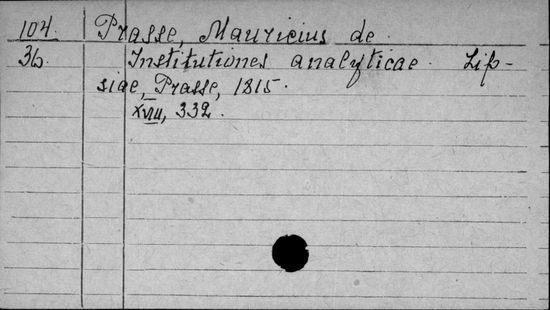 104. Prasse, Mauricius de
36. Institutiones analyticae. Lip-
siae, Prasse, 1815.
XVIII, 332.